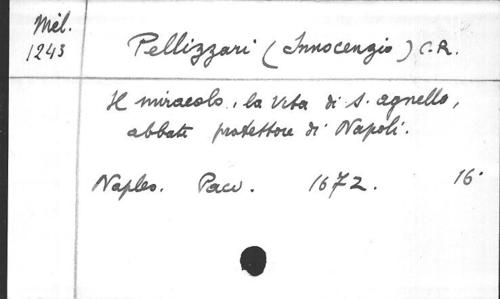 Mél.
1243
Pellizzari (Innocenzio) C.R.
Il miracolo, la vita di S. Agnello,
abbate protettore di Napoli.
Naples. Paci. 1672. 16°